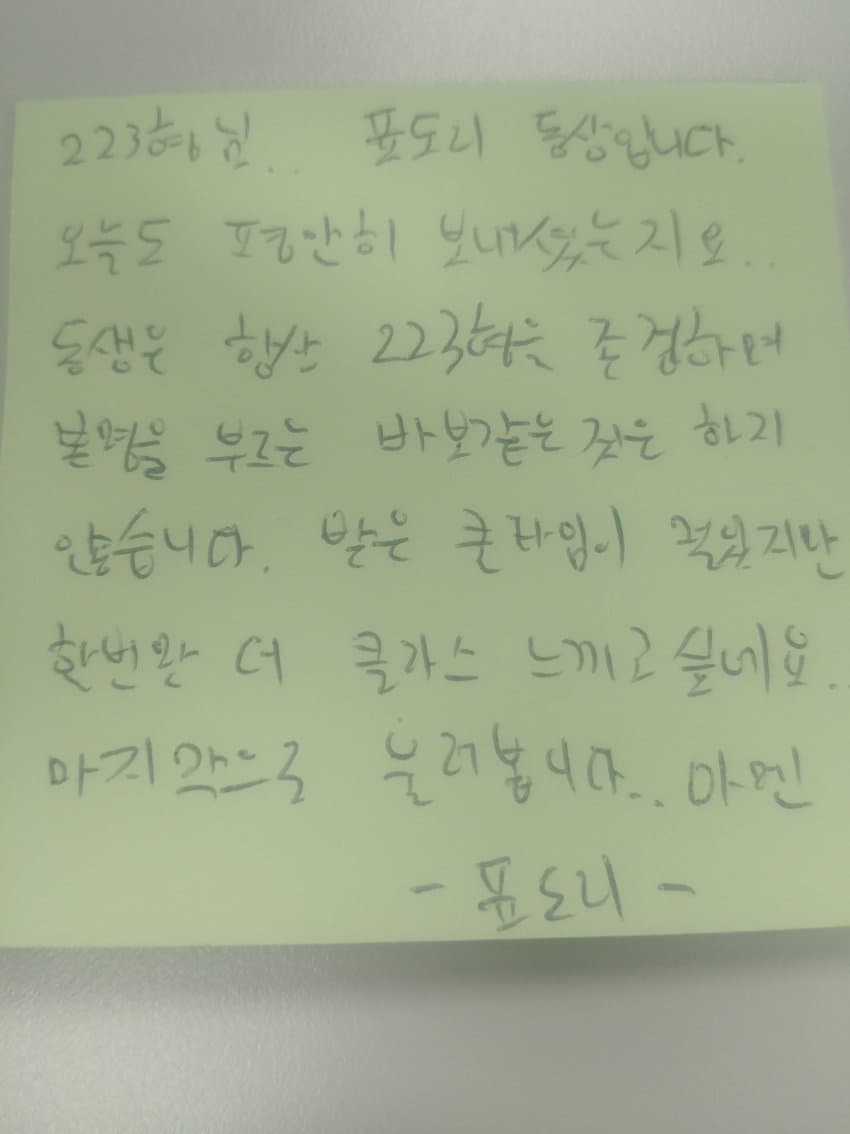 223형님.. 푠도리 동상입니다.
오늘도 평안히 보내셨는지요..
동생은 항상 223형을 존경하며
본명을 부르는 바보같은 짓은 하지
않습니다. 밝은 쿨타임이 걸렸지만
한번만 더 클가스 느끼고싶네요..
마지막으로 불러봅니다.. 아멘
- 푠도리 -